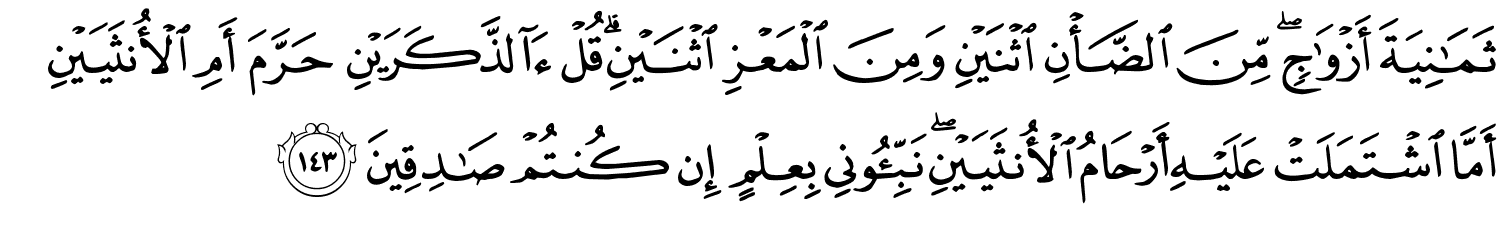 ثَمَٰنِيَةَ أَزْوَٰجٍۖ مِّنَ ٱلضَّأْنِ ٱثْنَيْنِ وَمِنَ ٱلْمَعْزِ ٱثْنَيْنِۗ قُلْ ءَآلذَّكَرَيْنِ حَرَّمَ أَمِ ٱلْأُنثَيَيْنِ
أَمَّا ٱشْتَمَلَتْ عَلَيْهِ أَرْحَامُ ٱلْأُنثَيَيْنِۖ نَبِّـُٔونِي بِعِلْمٍ إِن كُنتُمْ صَٰدِقِينَ ١٤٣